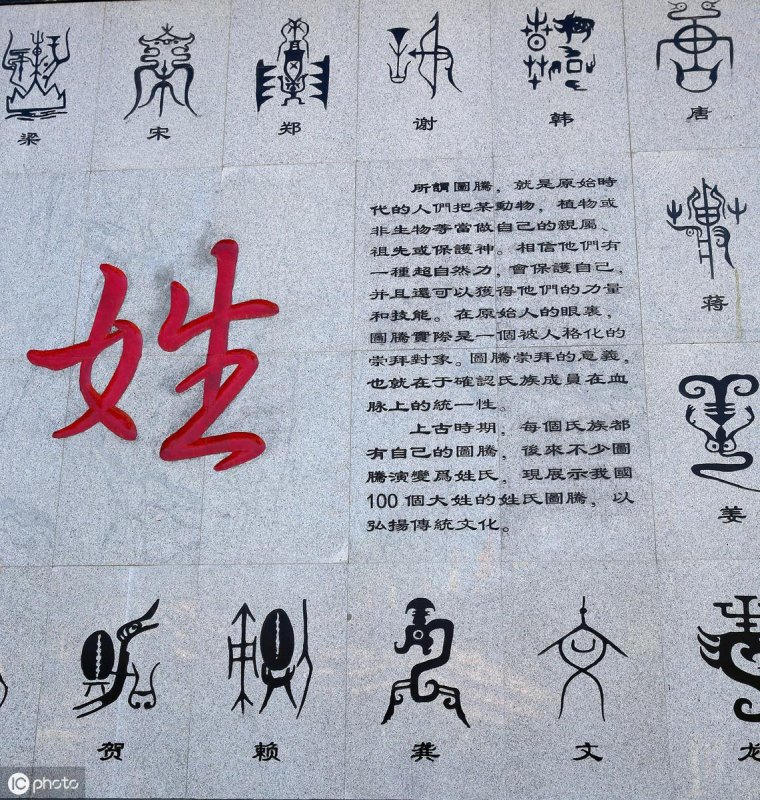 梁 宋 郑 谢 韩 唐
姓
所謂圖騰，就是原始時
代的人們把某動物，植物或
非生物等當做自己的親属、
祖先或保護神。相信他們有
一種超自然力，會保護自己，
并且還可以獲得他們的力量
和技能。在原始人的眼裏，
圖騰實際是一個被人格化的
崇拜對象。圖騰崇拜的意義，
也就在于確認氏族成員在血
脉上的統一性。
上古時期，每個氏族都
有自己的圖騰，後來不少圖
騰演變爲姓氏，現展示我國
100個大姓的姓氏圖騰，以
弘揚傳統文化。
蒋
姜
贺 赖 龚 文 龙
IC photo